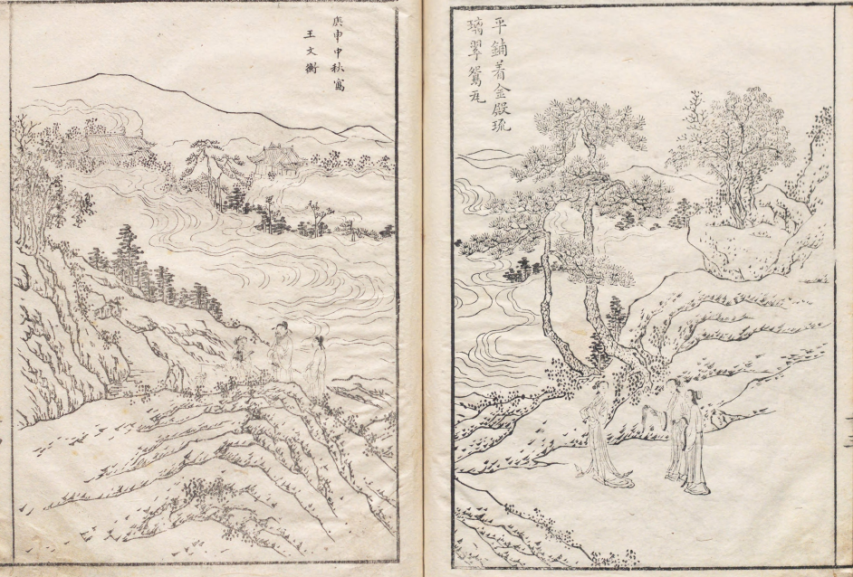 平鋪着金殿琉
璃翠鴛瓦
庚申中秋寫
王文衡